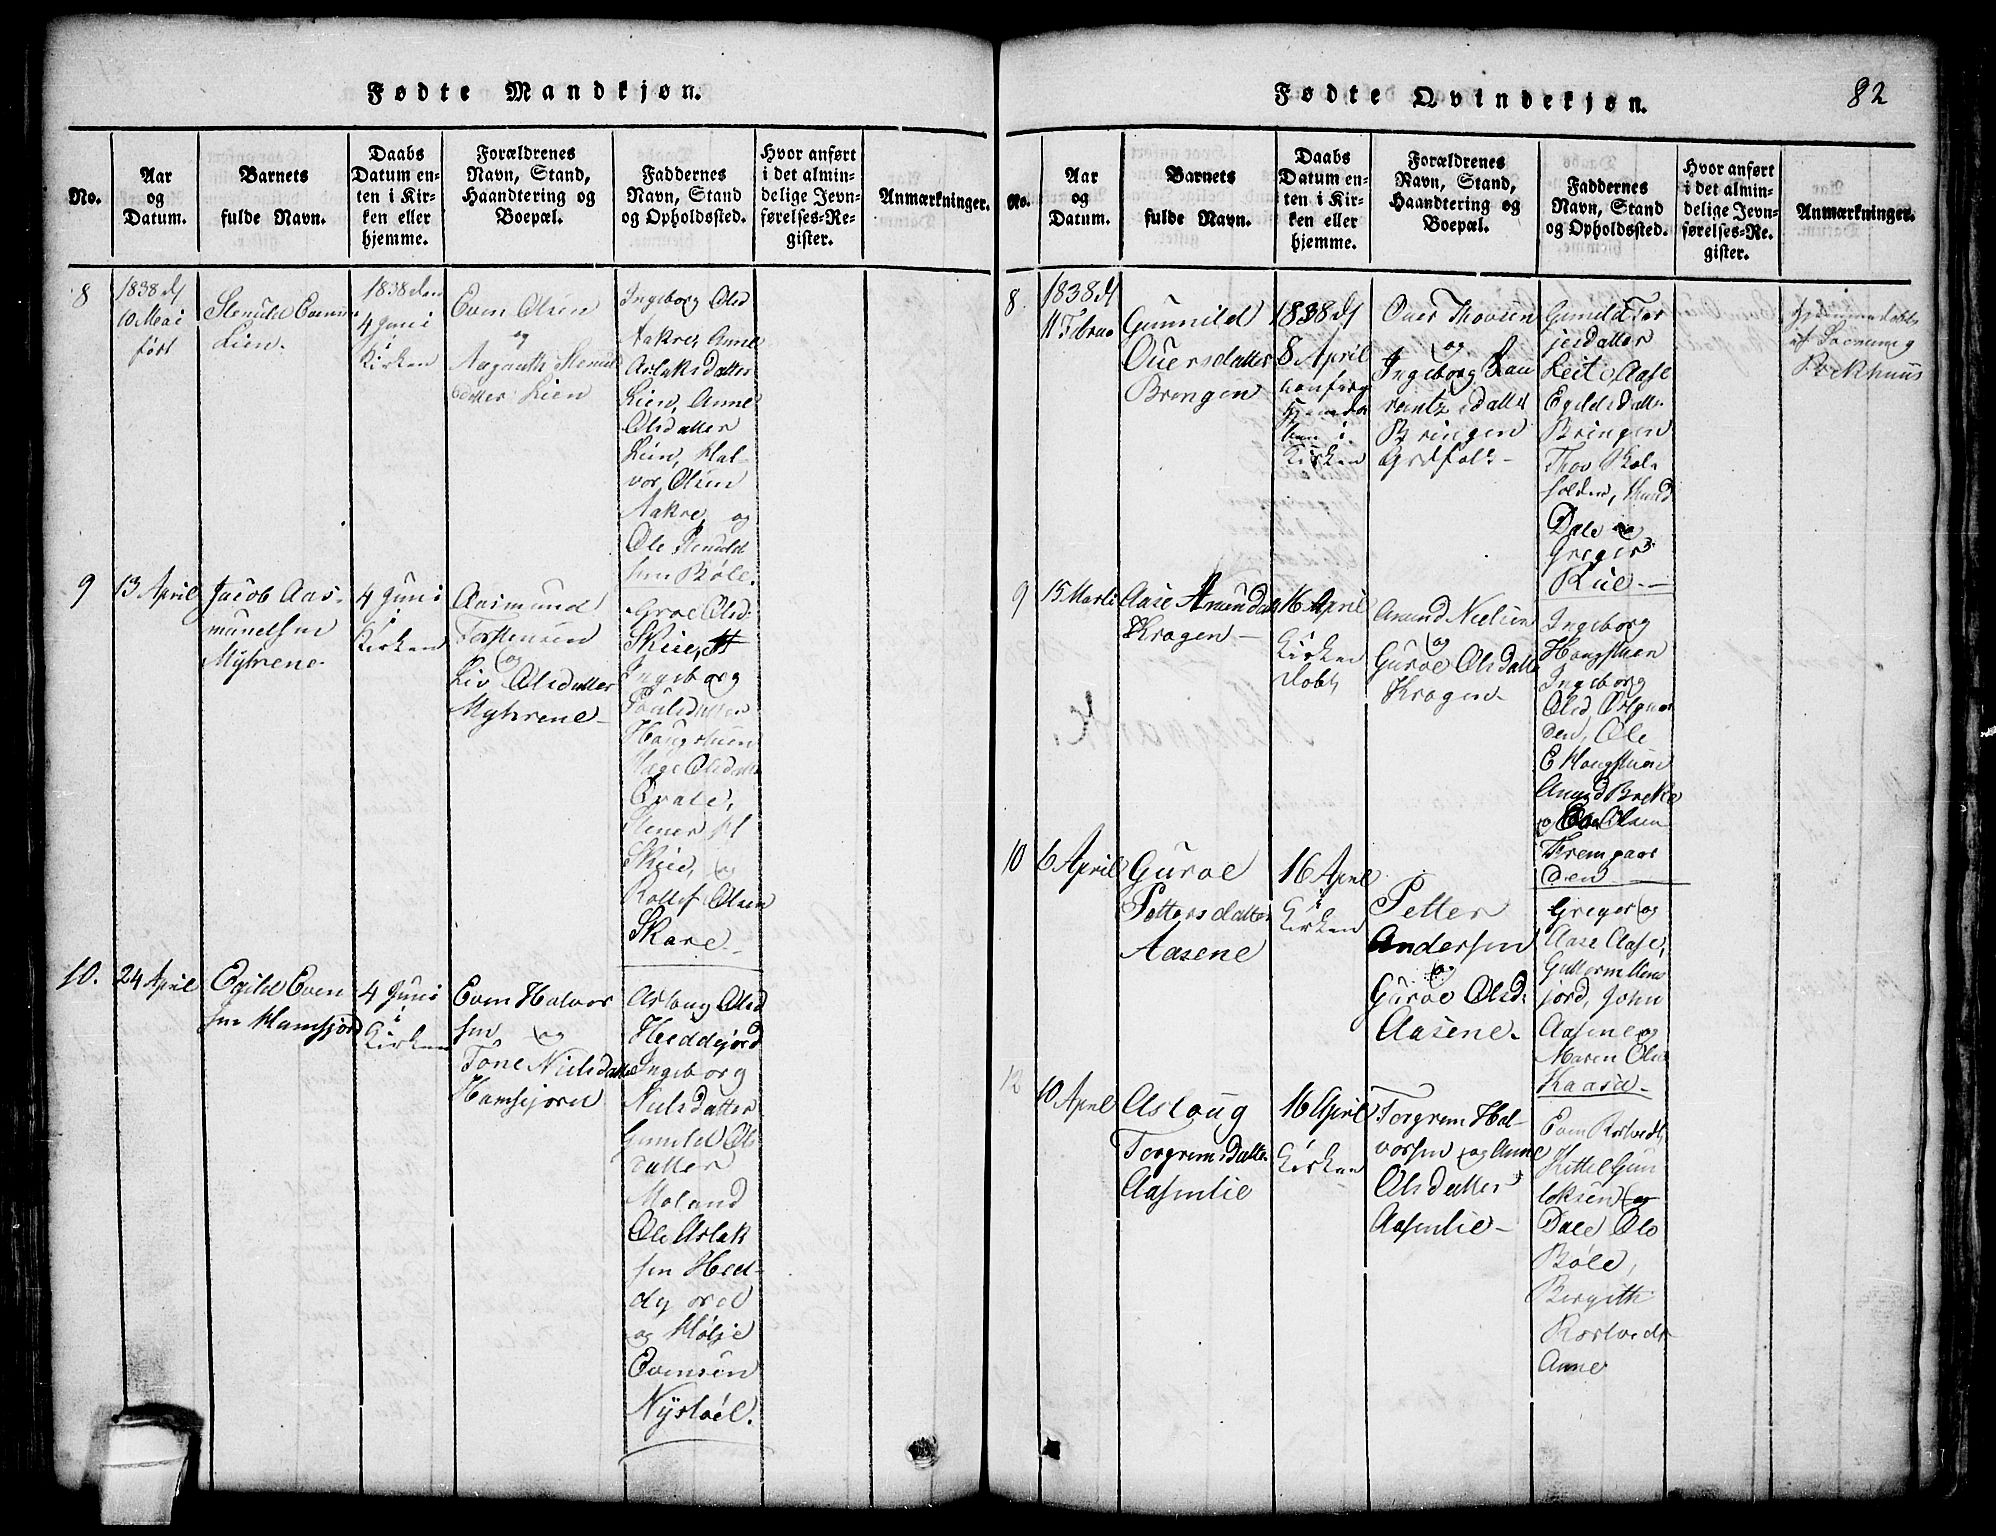 Fødte Mandkjøn.
No.
Aar
og
Datum.
Barnets
fulde Navn.
Daabs
Datum en-
ten i Kir-
ken eller
hjemme.
Forældrenes
Navn, Stand,
Haandtering og
Boepæl.
Faddernes
Navn, Stand
og Opholdssted.
Hvor anført
i det almin-
delige Jevn-
førelses-Re-
gister.
Anmærkninger.
8
1838 d
10 Mai
født
Lien.
1838 den
4 Juni
i
Kirken
Even Olsen
og
datter Lien
Ingeborg Olsd
Aakre, Anne
Aslaksdatter
Lien, Anne
Olsdatter
Lien, Hal-
vor Olsen
Aakre, og
Ole
sen Bøle.
9
13 April
Jacob Aas-
mundsen
Myhrene
4 Juni
i
Kirken
Aasmund
Torstensen
og
Liv Olsdatter
Myhrene
Groe Olsd:
Skiee,
Ingeborg
datter
Haugstuen
Olsdatter
Skiee, og
Rollef Olsen
Skare
10.
24 April
Egild Even
sen
4 Juni
i
Kirken
Even Halvor
sen og
Tone Nielsdatter
Asloug Olsd
Heddejord
Ingeborg
Nielsdatter
Gunild Ols
datter
Moland
Ole Aslak
sen Hed-
og
Evensen
Nystoel.
Fødte Qvindekjøn.
82
No.
Aar
og
Datum.
Barnets
fulde Navn.
Daabs
Datum en-
ten i Kir-
ken eller
hjemme.
Forældrenes
Navn, Stand,
Haandtering og
Boepæl.
Faddernes
Navn, Stand
og Opholdssted.
Hvor anført
i det almin-
delige Jevn-
førelses-Re-
gister.
Anmærkninger.
8
1838 d
11 Februa
Gunnild
Ouersdatter
Bringen
1838 d
8 April
i
Kirken
Ouer Thovsen
og
Ingeborg Lau
rantzsdatter
Bringen
Grdfolk
Gunild Ter
jesdatter
Leite, Aase
Egildsdatter
Bringen
Thov
Dale og
Greger
Rue
Hjemmedøbt
af
9
15 Marti
Aase Amundsdat
Kragen
16 April
i
Kirken
døbt
Amund Nielsen
og
Guroe Olsdatter
Kragen
Ingeborg
Haugstuen
Ingeborg
Olsd
den, Ole
E Haugstuen
Amund Brekke
og Olsen
den
10
6 April
Guroe
Pettersdatter
Aasene
16 April
i
Kirken
Petter
Andersen
og
Guroe Olsd:
Aasene.
Greger og
Aase Aase,
Guttorm
jord, John
Aasene og
Maren Ols
Kaasa
12
10 April
Asloug
Torgremsdatter
Aasenlie
16 April
i
Kirken
Torgrem Hal-
vorsen og Anne
Olsdatter
Aasenlie
Even Rostvedt,
Kittel Gun
leksen og
Dale Ole
Bøle,
Birgith
Rostvedt
Anne